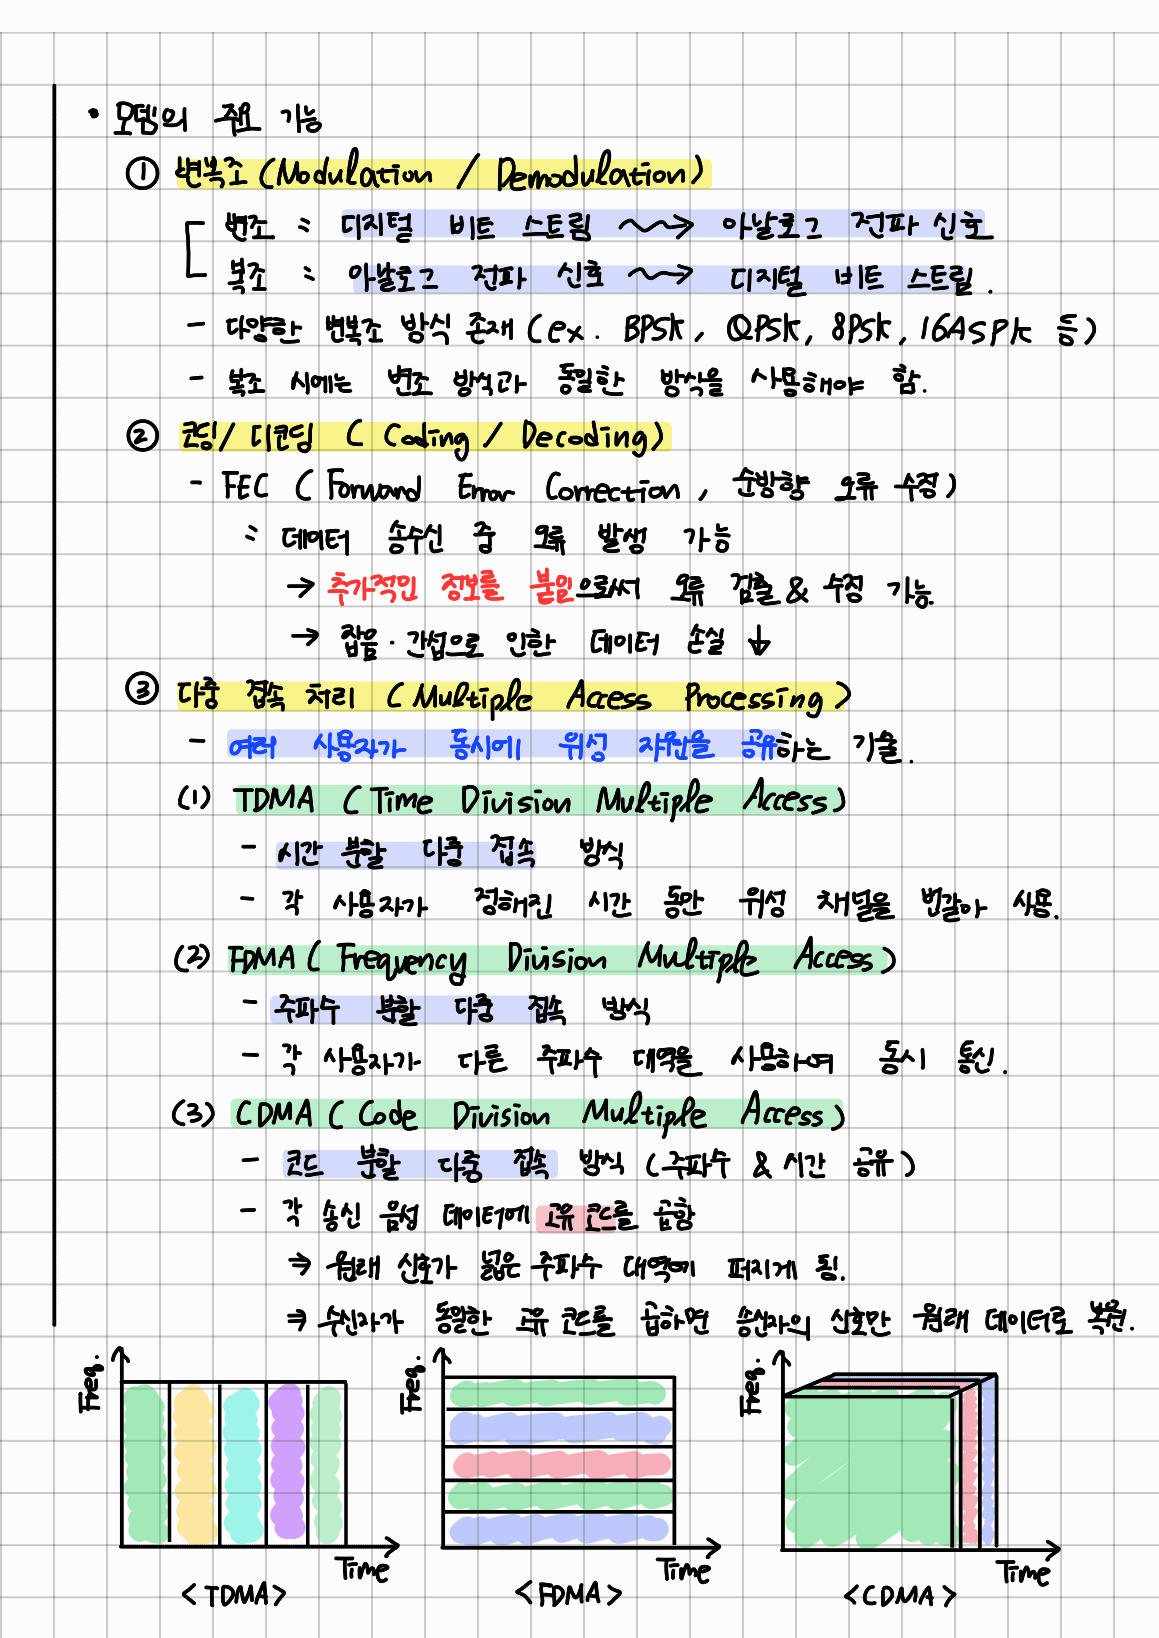 • 모뎀의 주요 기능
① 변복조 (Modulation / Demodulation)
변조 : 디지털 비트 스트림 → 아날로그 전파 신호
복조 : 아날로그 전파 신호 → 디지털 비트 스트림.
- 다양한 변복조 방식 존재 (ex. BPSK, QPSK, 8PSK, 16ASPK 등)
- 복조 시에는 변조 방식과 동일한 방식을 사용해야 함.
② 코딩/디코딩 (Coding / Decoding)
- FEC (Forward Error Correction, 순방향 오류 수정)
: 데이터 송수신 중 오류 발생 가능
→ 추가적인 정보를 붙임으로써 오류 검출 & 수정 가능.
→ 잡음·간섭으로 인한 데이터 손실 ↓
③ 다중 접속 처리 (Multiple Access Processing)
- 여러 사용자가 동시에 위성 자원을 공유하는 기술.
(1) TDMA (Time Division Multiple Access)
- 시간 분할 다중 접속 방식
- 각 사용자가 정해진 시간 동안 위성 채널을 번갈아 사용.
(2) FDMA (Frequency Division Multiple Access)
- 주파수 분할 다중 접속 방식
- 각 사용자가 다른 주파수 대역을 사용하여 동시 통신.
(3) CDMA (Code Division Multiple Access)
- 코드 분할 다중 접속 방식 (주파수 & 시간 공유)
- 각 송신 음성 데이터에 고유 코드를 곱함
⇒ 원래 신호가 넓은 주파수 대역에 퍼지게 됨.
⇒ 수신자가 동일한 고유 코드를 곱하면 송신자의 신호만 원래 데이터로 복원.
Freq.
Time
<TDMA>
Freq.
Time
<FDMA>
Freq.
Time
<CDMA>